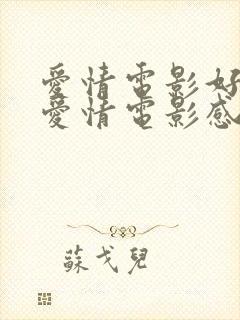 愛情電影好
愛情電影感
蘇戈兒